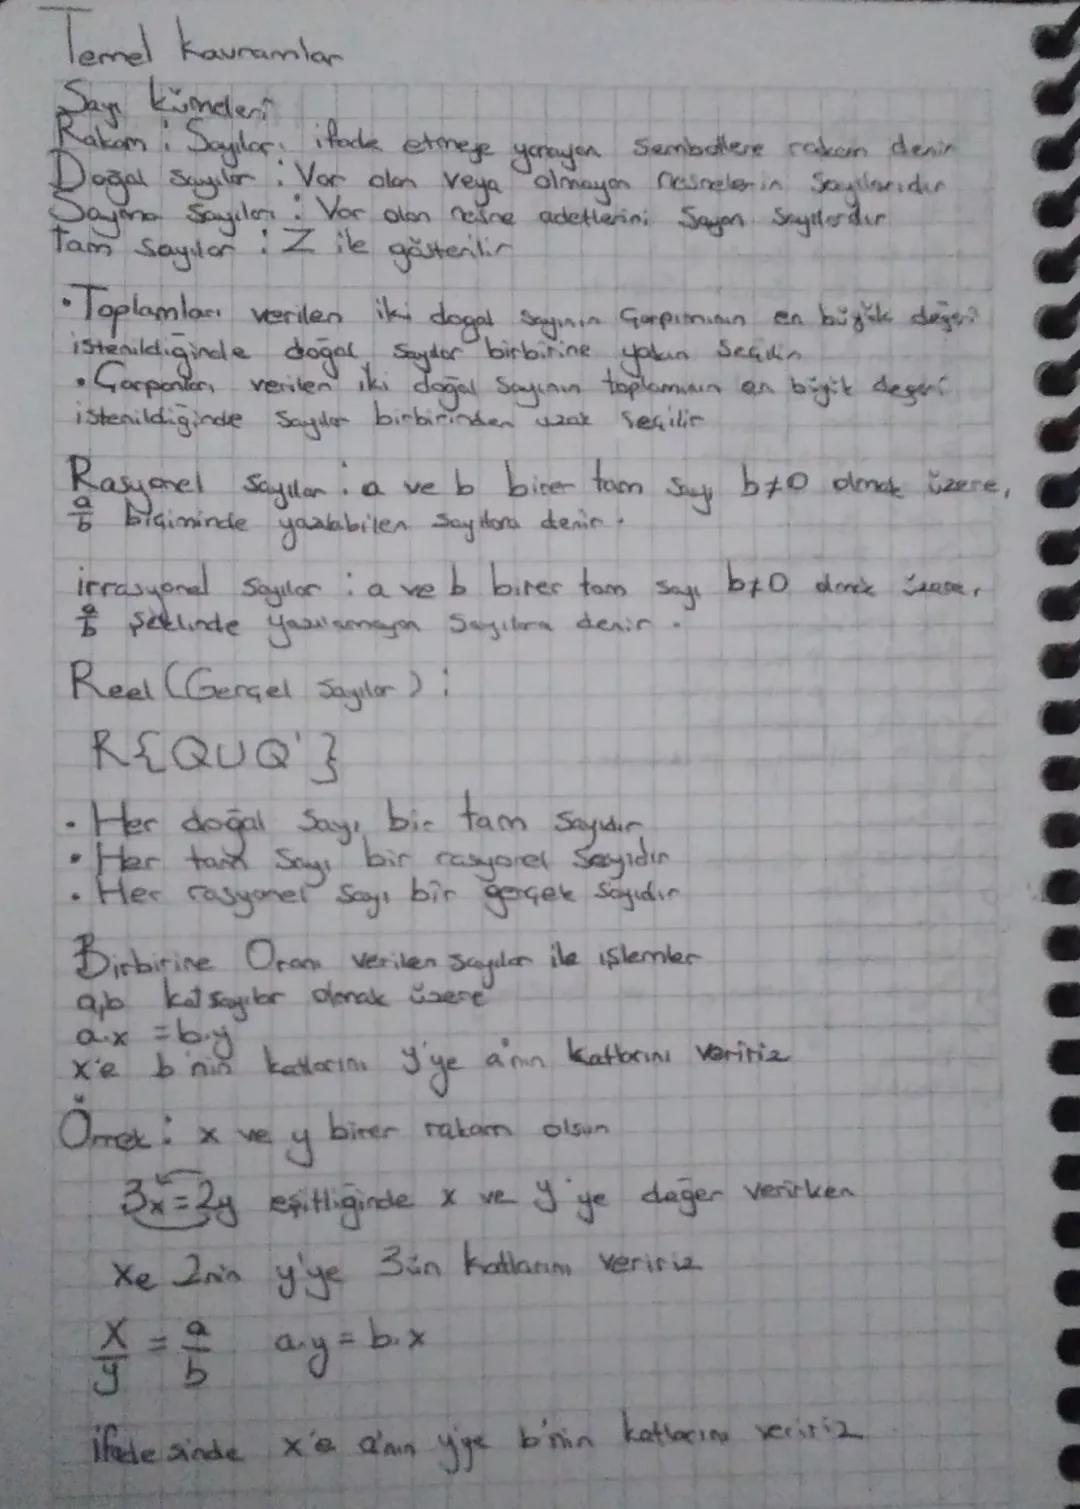 Temel Kavramlar
Sayı kümeleri
Rakam : Sayıları ifade etmeye yarayan Sembollere rakam denir
Doğal sayılar : Var olan veya olmayan nesnelerin Sayılarıdır
Sayma Sayıları : Var olan nesne adetlerini Sayan Sayılardır
Tam Sayılar : Z ile gösterilir
• Toplamları verilen iki dogal sayının Çarpımının en büyük değeri
istenildiğinde doğal sayılar birbirine yakın Seçilir
• Çarpanları verilen iki doğal Sayının toplamının en büyük degeri
istenildiğinde Sayılar birbirinden uzak Seçilir
Rasyonel Sayılar : a ve b birer tam Sayı b≠0 olmak üzere,
a/b biçiminde yazılabilen Sayılara denir.
irrasyonel Sayılar : a ve b birer tam sayı b≠0 olmak üzere,
a/b Şeklinde yazılamayan Sayılara denir.
Reel (Gerçel Sayılar) :
R{QUQ'}
• Her doğal Sayı bir tam Sayıdır
• Her tam Sayı bir rasyonel Sayıdır
• Her rasyonel Sayı bir gerçek Sayıdır
Birbirine Oranı verilen sayılar ile işlemler
a,b katsayılar olmak üzere
a.x = b.y
x'e b'nin katlarını y'ye a'nın Katlarını veririz
Örnek : x ve y birer rakam olsun
3x=2y eşitliğinde x ve y'ye değer verirken
Xe 2nin y'ye 3ün Katlarını veririz
X/y = a/b a.y = b.x
ifadesinde x'e a'nın y'ye b'nin katlarını veririz